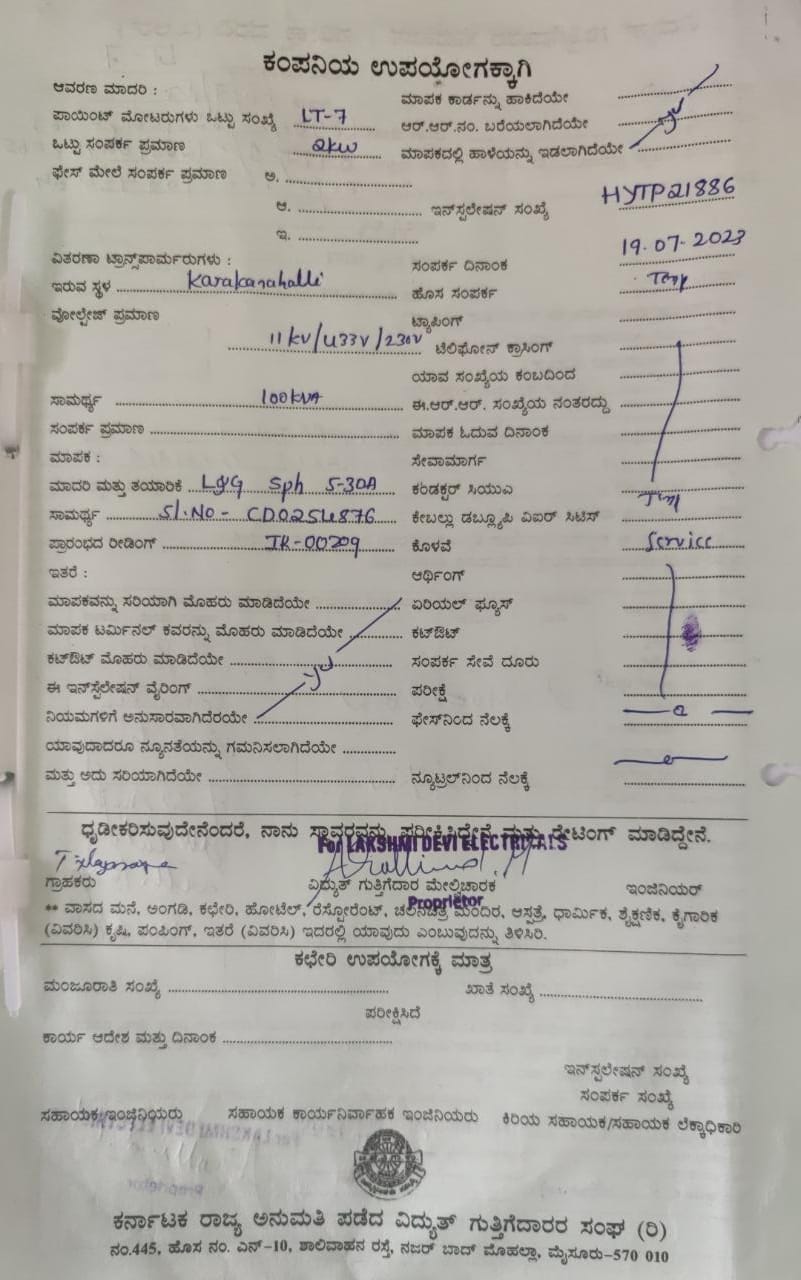 ಕಂಪನಿಯ ಉಪಯೋಗಕ್ಕಾಗಿ
ಆವರಣ ಮಾದರಿ : ಮಾಪಕ ಕಾರ್ಡನ್ನು ಹಾಕಿದೆಯೇ
ಪಾಯಿಂಟ್ ಮೋಟರುಗಳು ಒಟ್ಟು ಸಂಖ್ಯೆ LT-7 ಆರ್.ಆರ್.ನಂ. ಬರೆಯಲಾಗಿದೆಯೇ
ಒಟ್ಟು ಸಂಪರ್ಕ ಪ್ರಮಾಣ 2kw ಮಾಪಕದಲ್ಲಿ ಹಾಳೆಯನ್ನು ಇಡಲಾಗಿದೆಯೇ
ಫೇಸ್ ಮೇಲೆ ಸಂಪರ್ಕ ಪ್ರಮಾಣ ಅ.
ಆ. ಇನ್‌ಸ್ಟಲೇಷನ್ ಸಂಖ್ಯೆ HYTP21886
ಇ.
ವಿತರಣಾ ಟ್ರಾನ್ಸ್‌ಪಾರ್ಮರುಗಳು : ಸಂಪರ್ಕ ದಿನಾಂಕ 19.07.2023
ಇರುವ ಸ್ಥಳ Karakanahalli ಹೊಸ ಸಂಪರ್ಕ
ವೋಲ್ಟೇಜ್ ಪ್ರಮಾಣ ಟ್ಯಾಪಿಂಗ್
11kv/433v/230v ಟೆಲಿಫೋನ್ ಕ್ರಾಸಿಂಗ್
ಯಾವ ಸಂಖ್ಯೆಯ ಕಂಬದಿಂದ
ಸಾಮರ್ಥ್ಯ 100kVA ಈ.ಆರ್.ಆರ್. ಸಂಖ್ಯೆಯ ನಂತರದ್ದು
ಸಂಪರ್ಕ ಪ್ರಮಾಣ ಮಾಪಕ ಓದುವ ದಿನಾಂಕ
ಮಾಪಕ : ಸೇವಾಮಾರ್ಗ
ಮಾದರಿ ಮತ್ತು ತಯಾರಿಕೆ L&G Sph 5-30A ಕಂಡಕ್ಟರ್ ಸಿಯುಎ
ಸಾಮರ್ಥ್ಯ Sl.No- CD0254876 ಕೇಬಲ್ಲು ಡಬ್ಲ್ಯೂಪಿ ಎಐರ್ ಸಿಟಿಸ್
ಪ್ರಾರಂಭದ ರೀಡಿಂಗ್ IR-00209 ಕೊಳವೆ Service
ಇತರೆ : ಆರ್ಥಿಂಗ್
ಮಾಪಕವನ್ನು ಸರಿಯಾಗಿ ಮೊಹರು ಮಾಡಿದೆಯೇ ಏರಿಯಲ್ ಫ್ಯೂಸ್
ಮಾಪಕ ಟರ್ಮಿನಲ್ ಕವರನ್ನು ಮೊಹರು ಮಾಡಿದೆಯೇ ಕಟ್‌ಔಟ್
ಕಟ್‌ಔಟ್ ಮೊಹರು ಮಾಡಿದೆಯೇ ಸಂಪರ್ಕ ಸೇವೆ ದೂರು
ಈ ಇನ್‌ಸ್ಟೆಲೇಷನ್ ವೈರಿಂಗ್ ಪರೀಕ್ಷೆ
ನಿಯಮಗಳಿಗೆ ಅನುಸಾರವಾಗಿದೆರಯೇ ಫೇಸ್‌ನಿಂದ ನೆಲಕ್ಕೆ
ಯಾವುದಾದರೂ ನ್ಯೂನತೆಯನ್ನು ಗಮನಿಸಲಾಗಿದೆಯೇ
ಮತ್ತು ಅದು ಸರಿಯಾಗಿದೆಯೇ ನ್ಯೂಟ್ರಲ್‌ನಿಂದ ನೆಲಕ್ಕೆ
ಧೃಡೀಕರಿಸುವುದೇನೆಂದರೆ, ನಾನು ಸ್ಥಾವರವನ್ನು ಪರೀಕ್ಷಿಸಿದ್ದೇನೆ ಮತ್ತು ರೇಟಿಂಗ್ ಮಾಡಿದ್ದೇನೆ.
For LAKSHMI DEVI ELECTRICALS
ಗ್ರಾಹಕರು ವಿದ್ಯುತ್ ಗುತ್ತಿಗೆದಾರ ಮೇಲ್ವಿಚಾರಕ ಇಂಜಿನಿಯರ್
Proprietor
** ವಾಸದ ಮನೆ, ಅಂಗಡಿ, ಕಛೇರಿ, ಹೋಟೆಲ್, ರೆಸ್ಟೋರೆಂಟ್, ಚಲನಚಿತ್ರ ಮಂದಿರ, ಆಸ್ಪತ್ರೆ, ಧಾರ್ಮಿಕ, ಶೈಕ್ಷಣಿಕ, ಕೈಗಾರಿಕ
(ವಿವರಿಸಿ) ಕೃಷಿ, ಪಂಪಿಂಗ್, ಇತರೆ (ವಿವರಿಸಿ) ಇದರಲ್ಲಿ ಯಾವುದು ಎಂಬುವುದನ್ನು ತಿಳಿಸಿರಿ.
ಕಛೇರಿ ಉಪಯೋಗಕ್ಕೆ ಮಾತ್ರ
ಮಂಜೂರಾತಿ ಸಂಖ್ಯೆ ಖಾತೆ ಸಂಖ್ಯೆ
ಪರೀಕ್ಷಿಸಿದೆ
ಕಾರ್ಯ ಆದೇಶ ಮತ್ತು ದಿನಾಂಕ
ಇನ್‌ಸ್ಟಲೇಷನ್ ಸಂಖ್ಯೆ
ಸಂಪರ್ಕ ಸಂಖ್ಯೆ
ಸಹಾಯಕ ಇಂಜಿನಿಯರು ಸಹಾಯಕ ಕಾರ್ಯನಿರ್ವಾಹಕ ಇಂಜಿನಿಯರು ಕಿರಿಯ ಸಹಾಯಕ/ಸಹಾಯಕ ಲೆಕ್ಕಾಧಿಕಾರಿ
ಕರ್ನಾಟಕ ರಾಜ್ಯ ಅನುಮತಿ ಪಡೆದ ವಿದ್ಯುತ್ ಗುತ್ತಿಗೆದಾರರ ಸಂಘ (ರಿ)
ನಂ.445, ಹೊಸ ನಂ. ಎನ್-10, ಶಾಲಿವಾಹನ ರಸ್ತೆ, ನಜರ್ ಬಾದ್ ಮೊಹಲ್ಲಾ, ಮೈಸೂರು-570 010